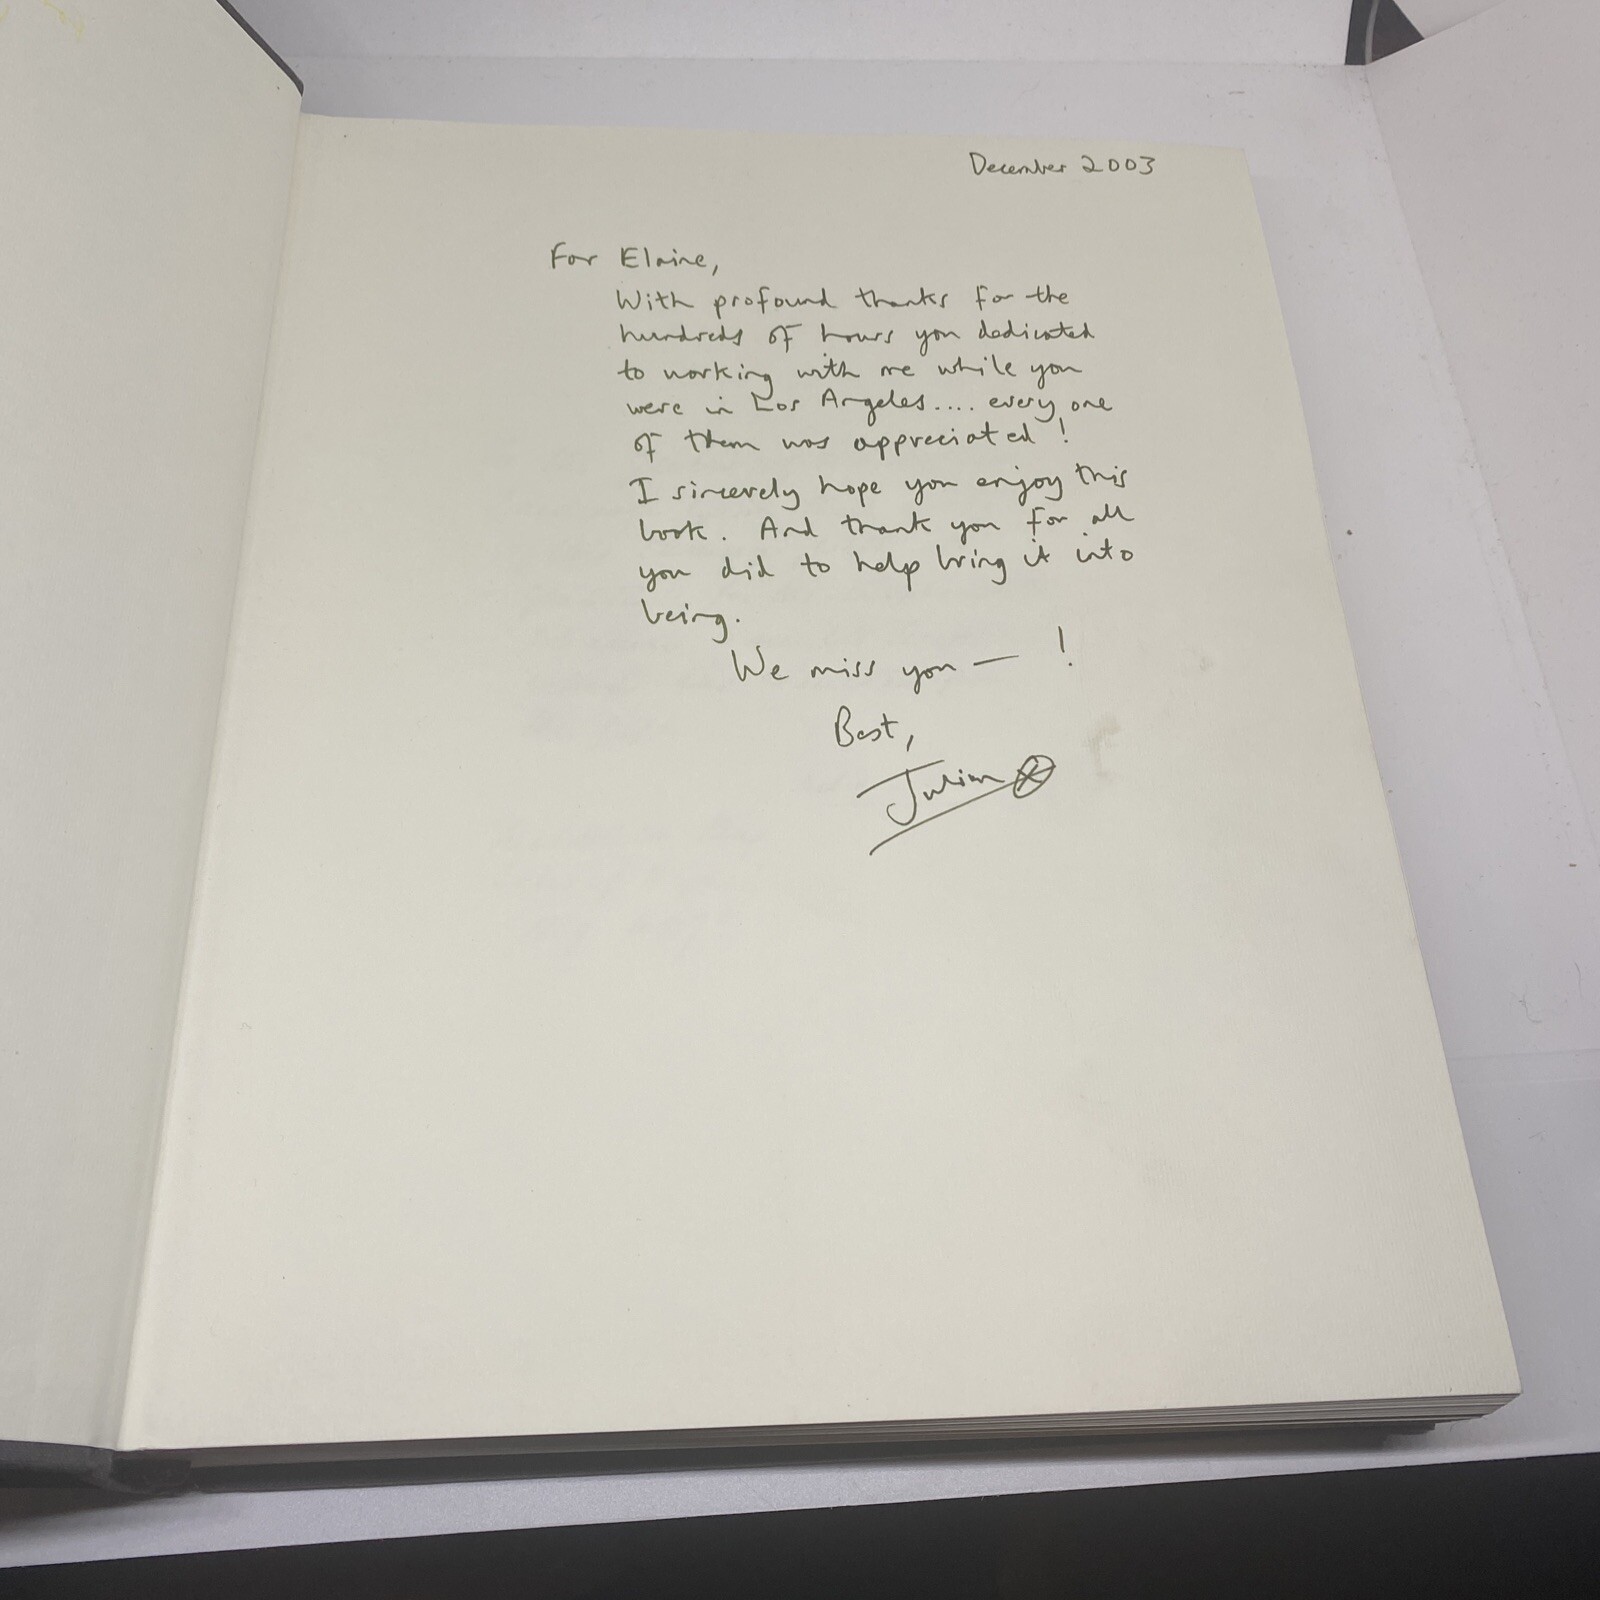 December 2003
For Elaine,
With profound thanks for the
hundreds of hours you dedicated
to working with me while you
were in Los Angeles.... every one
of them was appreciated!
I sincerely hope you enjoy this
book. And thank you for all
you did to help bring it into
being.
We miss you — !
Best,
Julian